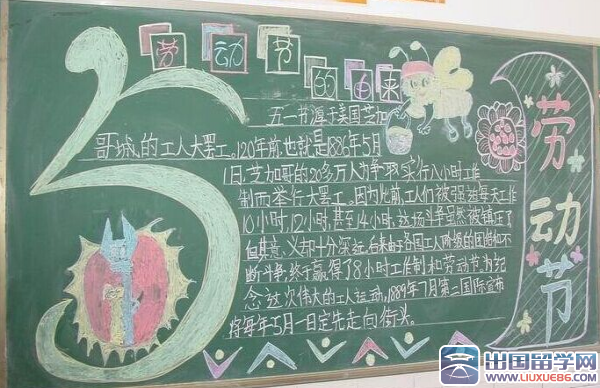 劳动节的由来
五一节源于美国芝加
哥城的工人大罢工。120年前也就是1886年5月
1日,芝加哥的20多万人为争取实行八小时工作
制而举行大罢工。因为此前,工人们被强迫每天工作
10小时,12小时,甚至14小时,这场斗争虽然被镇压了
但其意义却十分深远,后来由于各国工人阶级的团结和不
断斗争,终于赢得了8小时工作制和劳动节。为纪
念这次伟大的工人运动,1889年7月第二国际宣布
将每年5月1日定
走向街头。
5
劳动节
出国留学网
WWW.LIUXUE86.COM